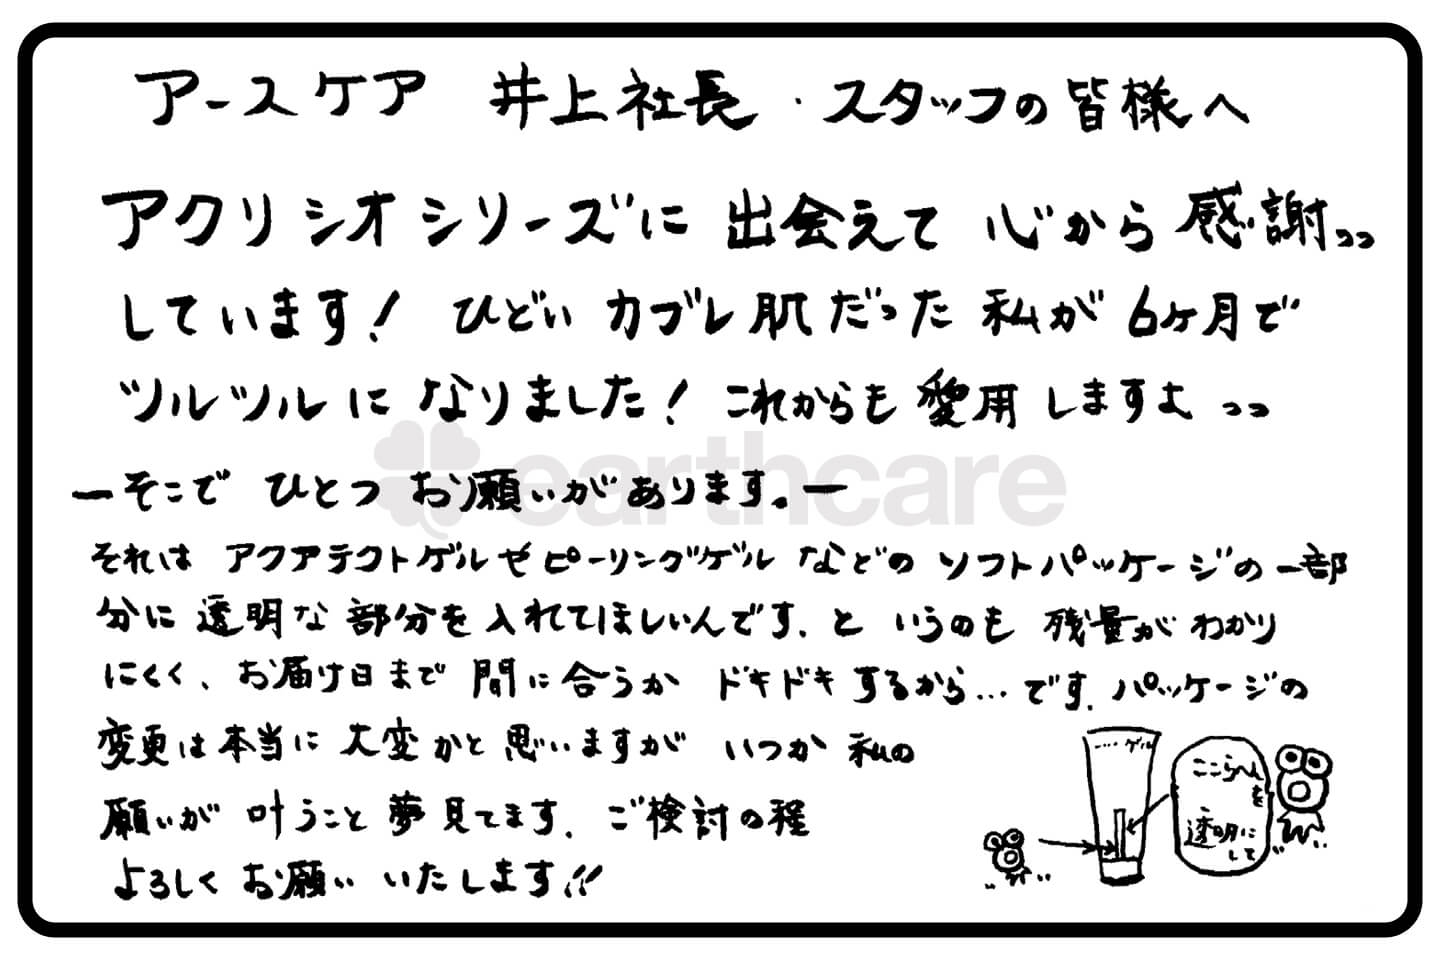 アースケア 井上社長・スタッフの皆様へ
アクリシオシリーズに出会えて心から感謝っっ
しています! ひどいカブレ肌だった私が6ヶ月で
ツルツルになりました! これからも愛用しますよっっ
earthcare
ーそこで ひとつ お願いがあります。ー
それは アクアテクトゲルやピーリングゲルなどのソフトパッケージの一部
分に透明な部分を入れてほしいんです. というのも 残量がわかり
にくく、お届け日まで間に合うかドキドキするから…です. パッケージの
変更は本当に大変かと思いますが いつか私の
願いが叶うこと夢見てます. ご検討の程
よろしくお願いいたします!!
…ゲル
ここらへん
を
透明に
して